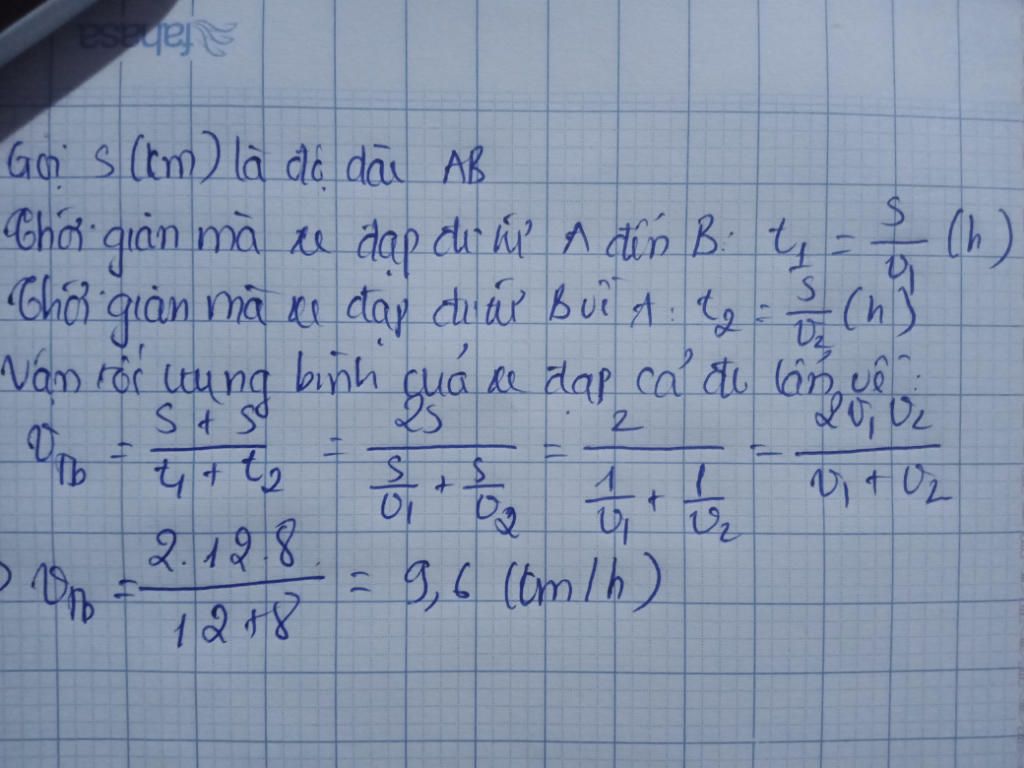 fahasa
Gọi S (km) là độ dài AB
Thời gian mà xe đạp đi từ A đến B: t₁ = S/v₁ (h)
Thời gian mà xe đạp đi từ B về A: t₂ = S/v₂ (h)
Vận tốc trung bình của xe đạp cả đi lẫn về:
v_Tb = (S + S)/(t₁ + t₂) = 2S/(S/v₁ + S/v₂) = 2/(1/v₁ + 1/v₂) = 2v₁v₂/(v₁ + v₂)
v_Tb = (2.12.8)/(12+8) = 9,6 (km/h)